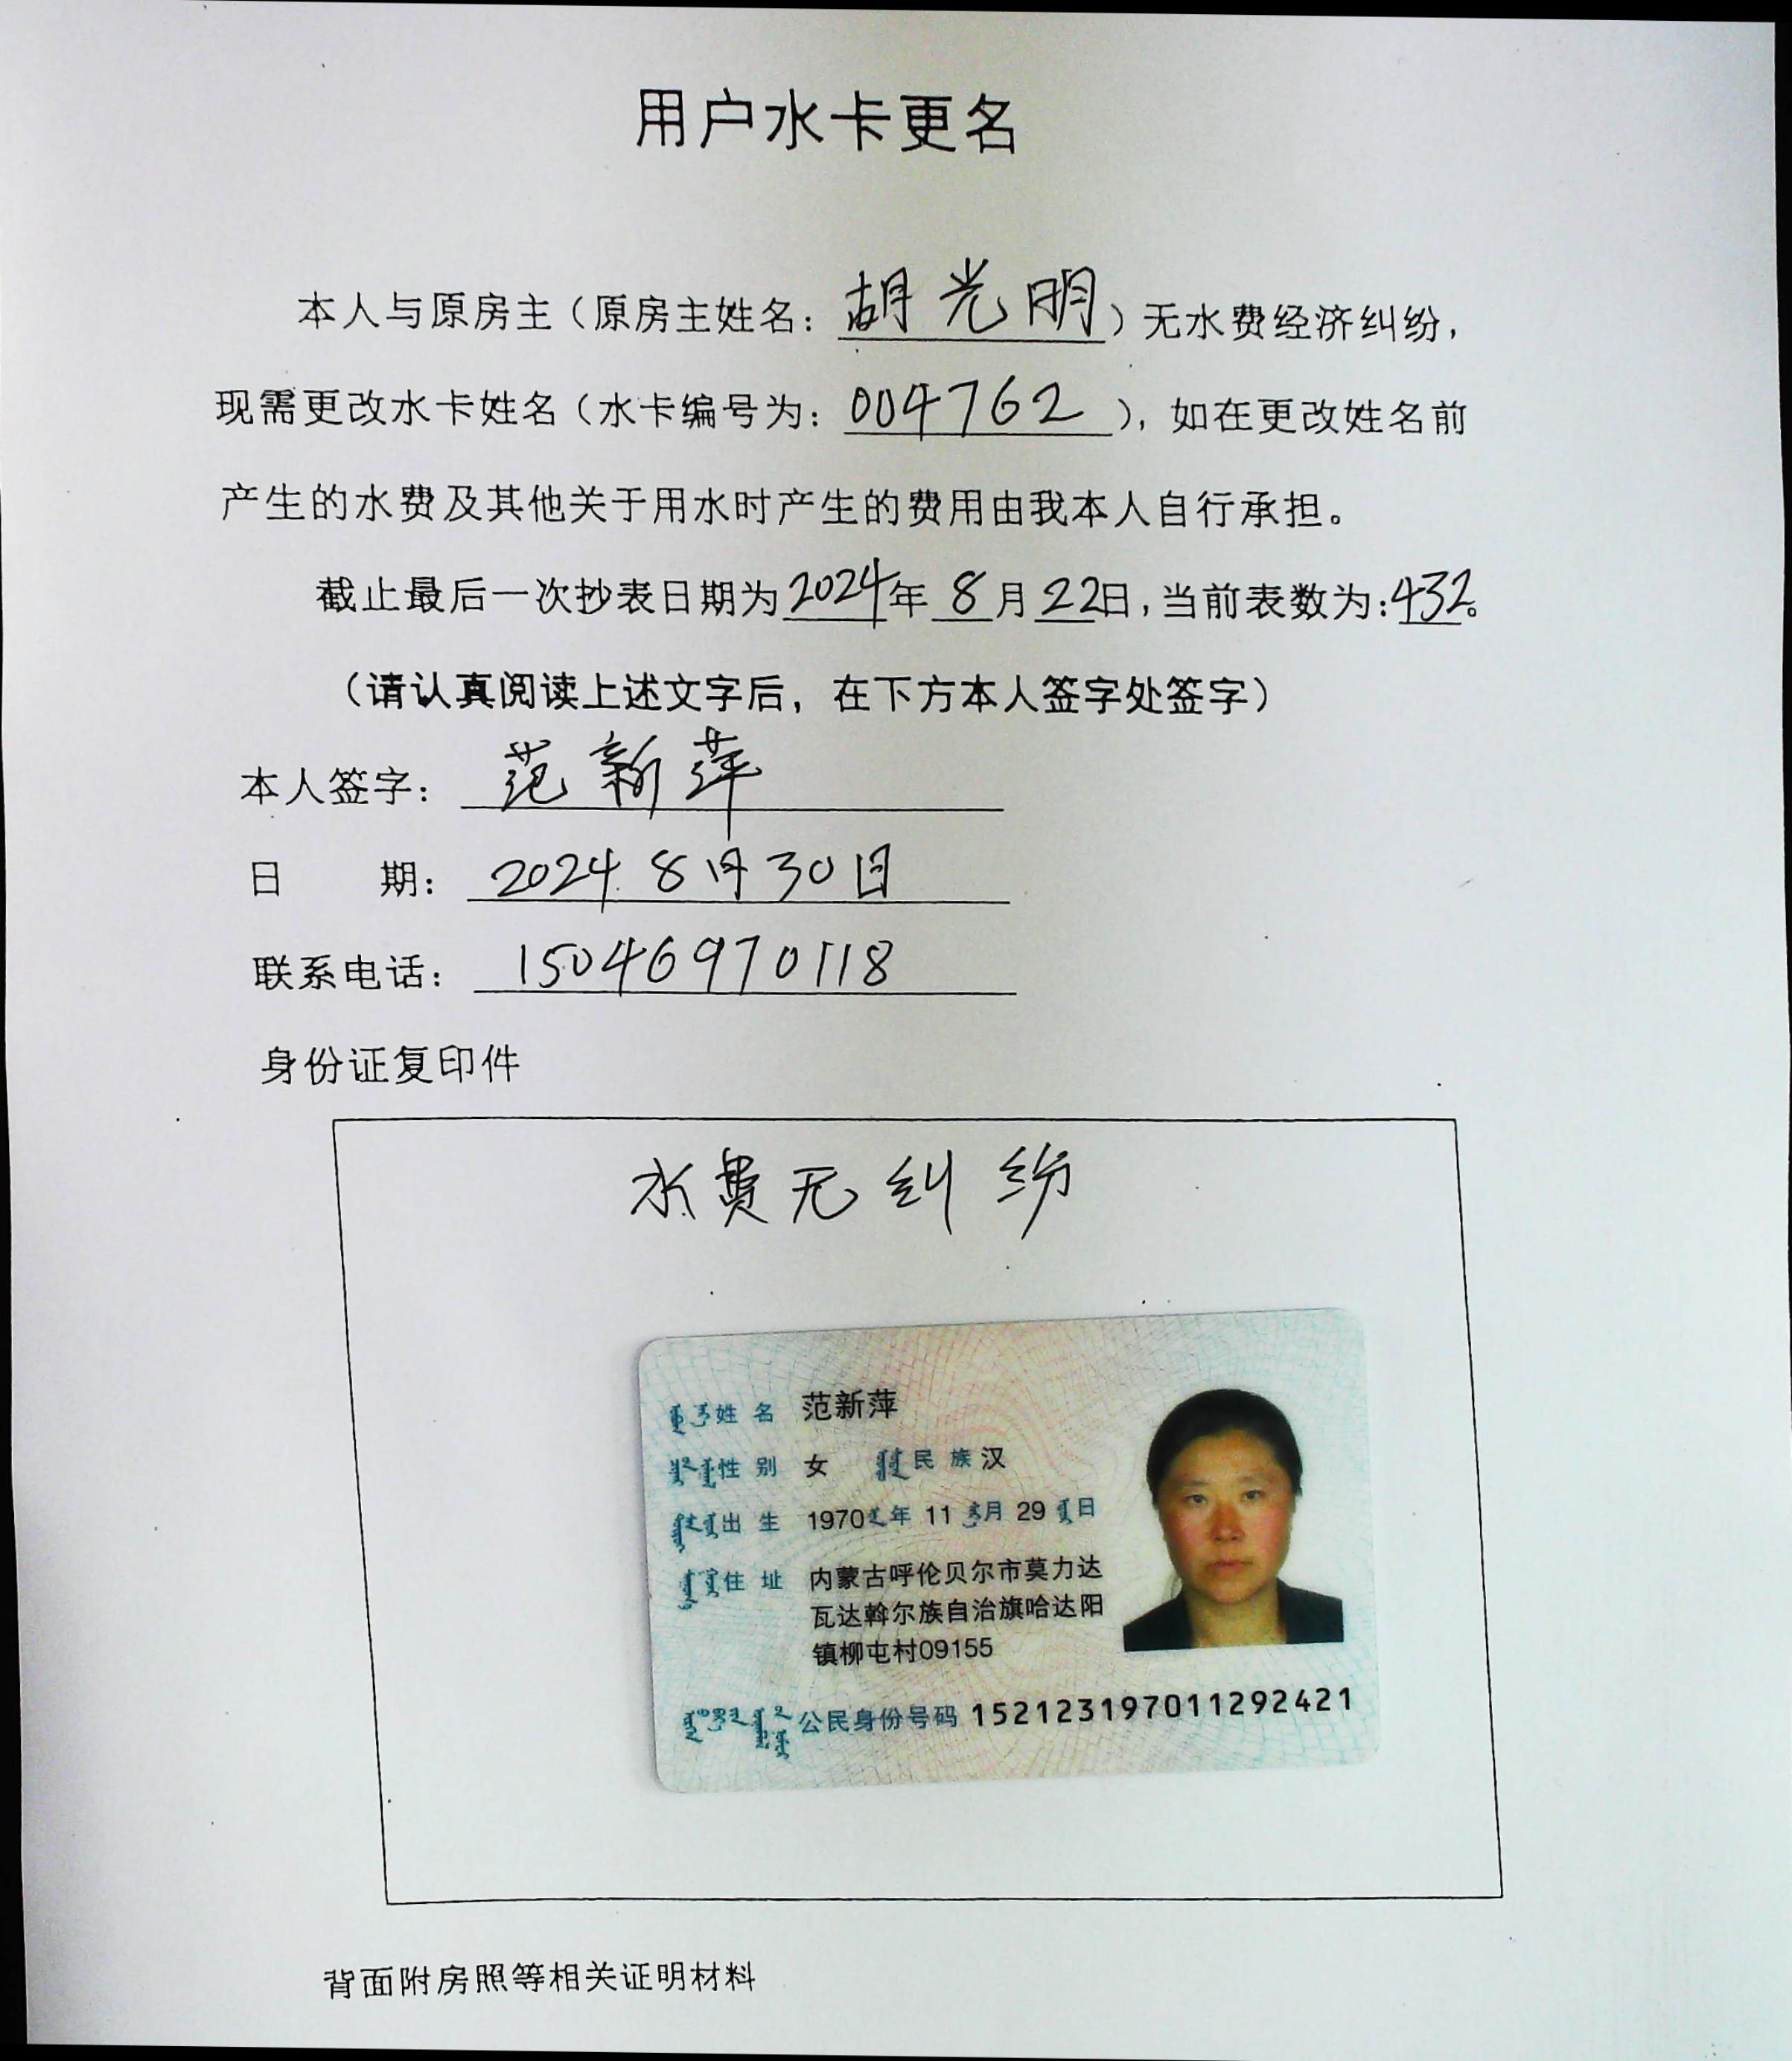 用户水卡更名
本人与原房主（原房主姓名：胡光明）无水费经济纠纷，
现需更改水卡姓名（水卡编号为：004762），如在更改姓名前
产生的水费及其他关于用水时产生的费用由我本人自行承担。
截止最后一次抄表日期为2024年8月22日，当前表数为：432。
（请认真阅读上述文字后，在下方本人签字处签字）
本人签字：范新萍
日 期：2024.8月30日
联系电话：15046970118
身份证复印件
水费无纠纷
姓名 范新萍
性别 女 民族 汉
出生 1970年11月29日
住址 内蒙古呼伦贝尔市莫力达
瓦达斡尔族自治旗哈达阳
镇柳屯村09155
公民身份号码 152123197011292421
背面附房照等相关证明材料